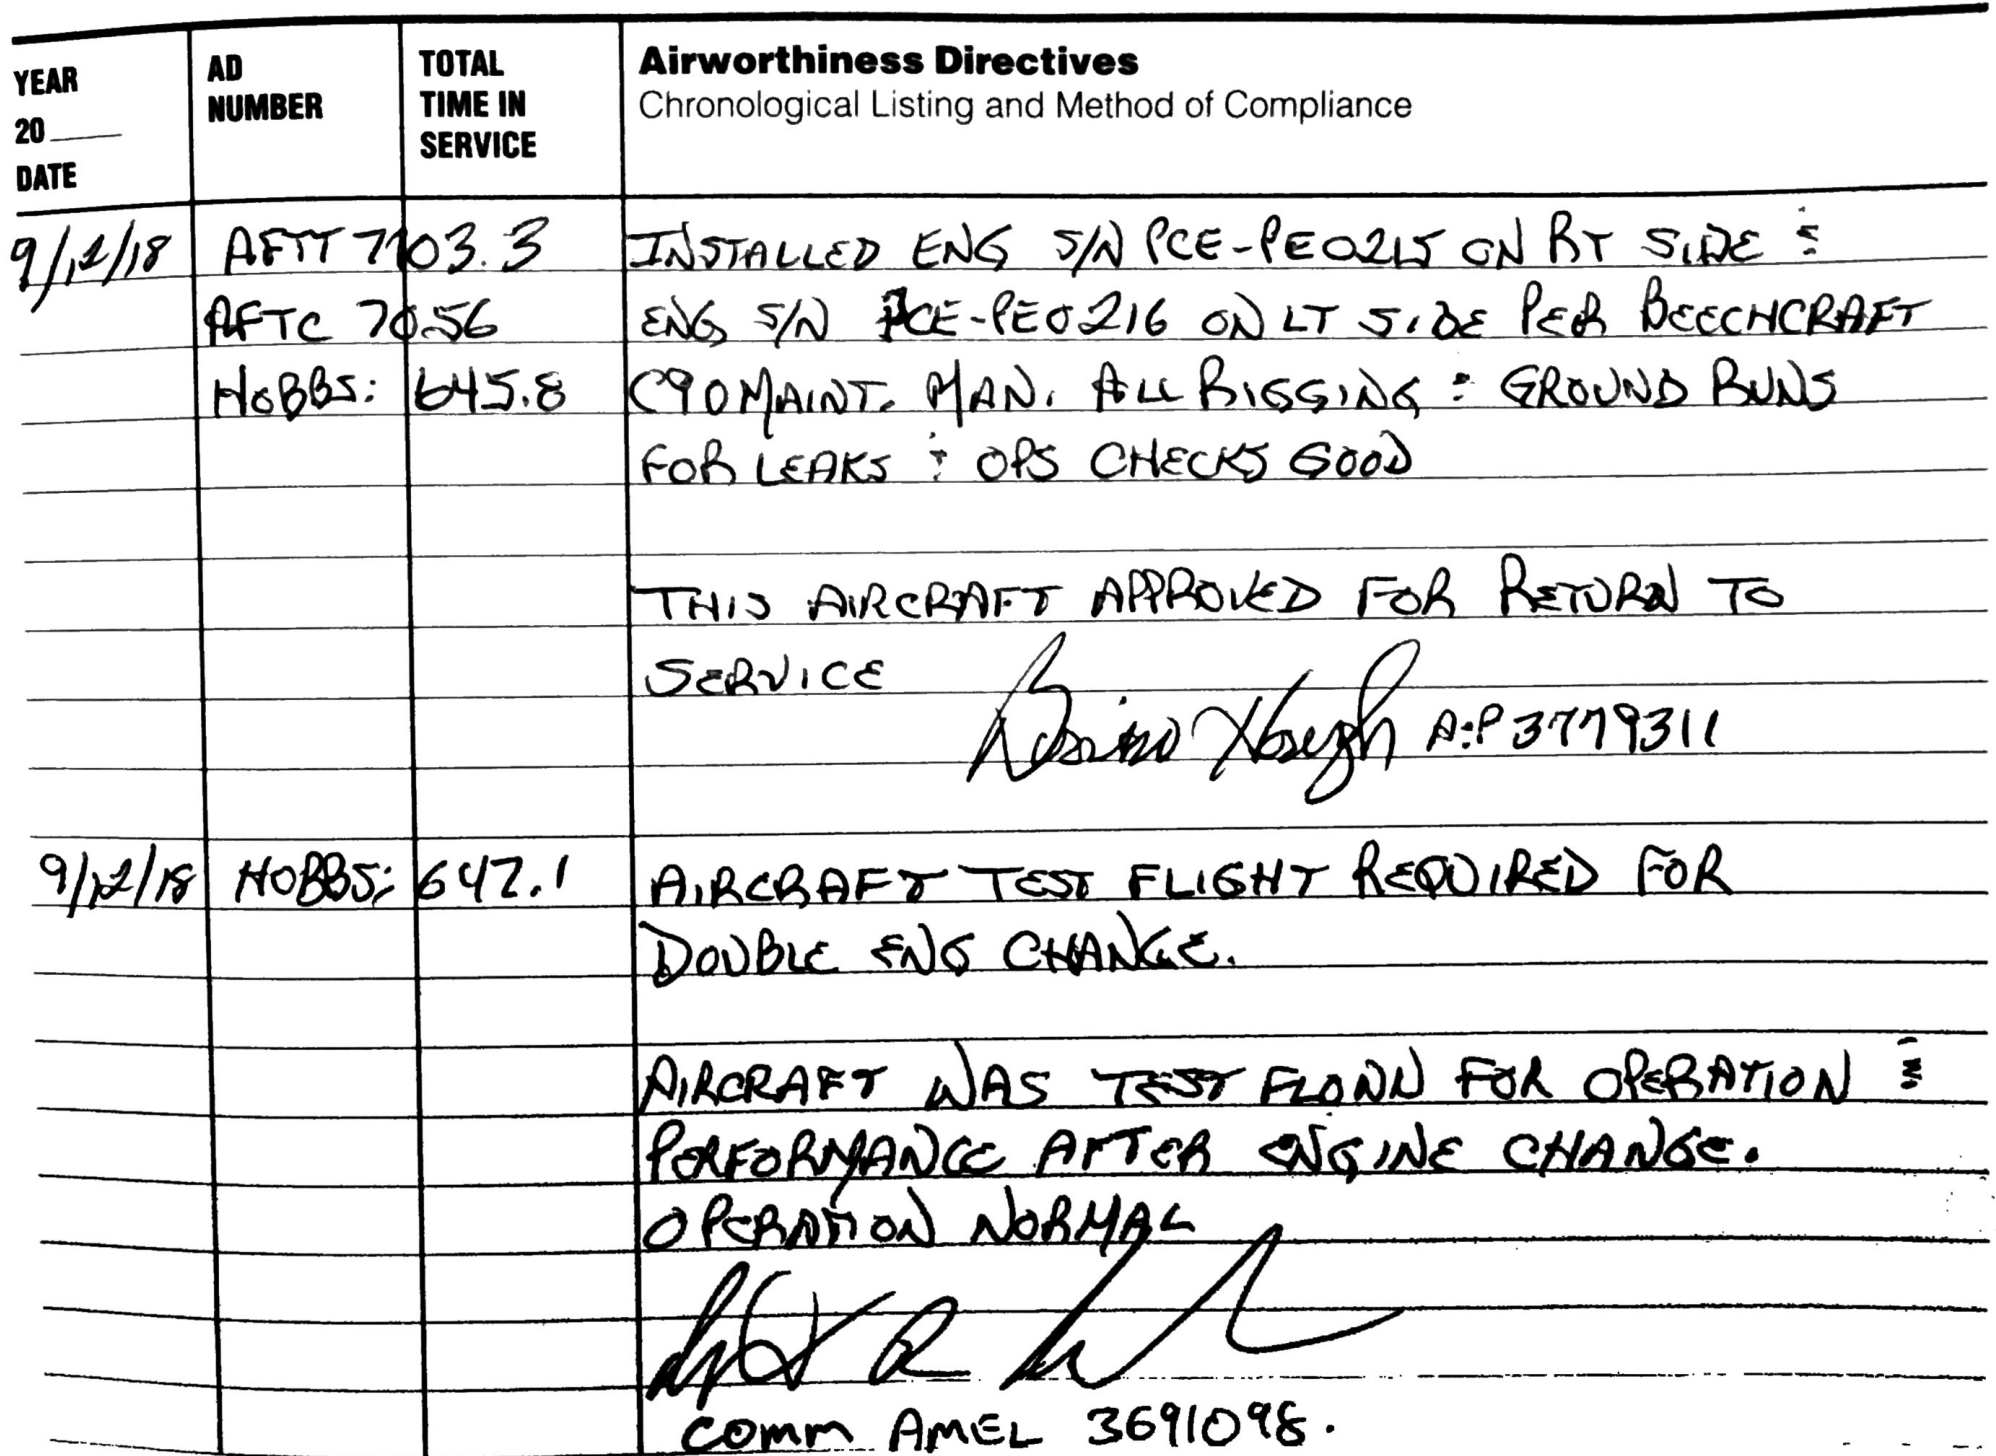 YEAR
20
DATE
AD
NUMBER
TOTAL
TIME IN
SERVICE
Airworthiness Directives
Chronological Listing and Method of Compliance
9/12/18 AFTT 7103.3 INSTALLED ENG S/N PCE-PE0215 ON RT SIDE &
AFTC 7056 ENG S/N PCE-PE0216 ON LT SIDE PER BEECHCRAFT
HOBBS: 645.8 C90 MAINT. MAN. ALL RIGGING & GROUND RUNS
FOR LEAKS & OPS CHECKS GOOD
THIS AIRCRAFT APPROVED FOR RETURN TO
SERVICE
A&P 3779311
9/12/18 HOBBS: 647.1 AIRCRAFT TEST FLIGHT REQUIRED FOR
DOUBLE ENG CHANGE.
AIRCRAFT WAS TEST FLOWN FOR OPERATION &
PERFORMANCE AFTER ENGINE CHANGE.
OPERATION NORMAL
COMM AMEL 3691098.